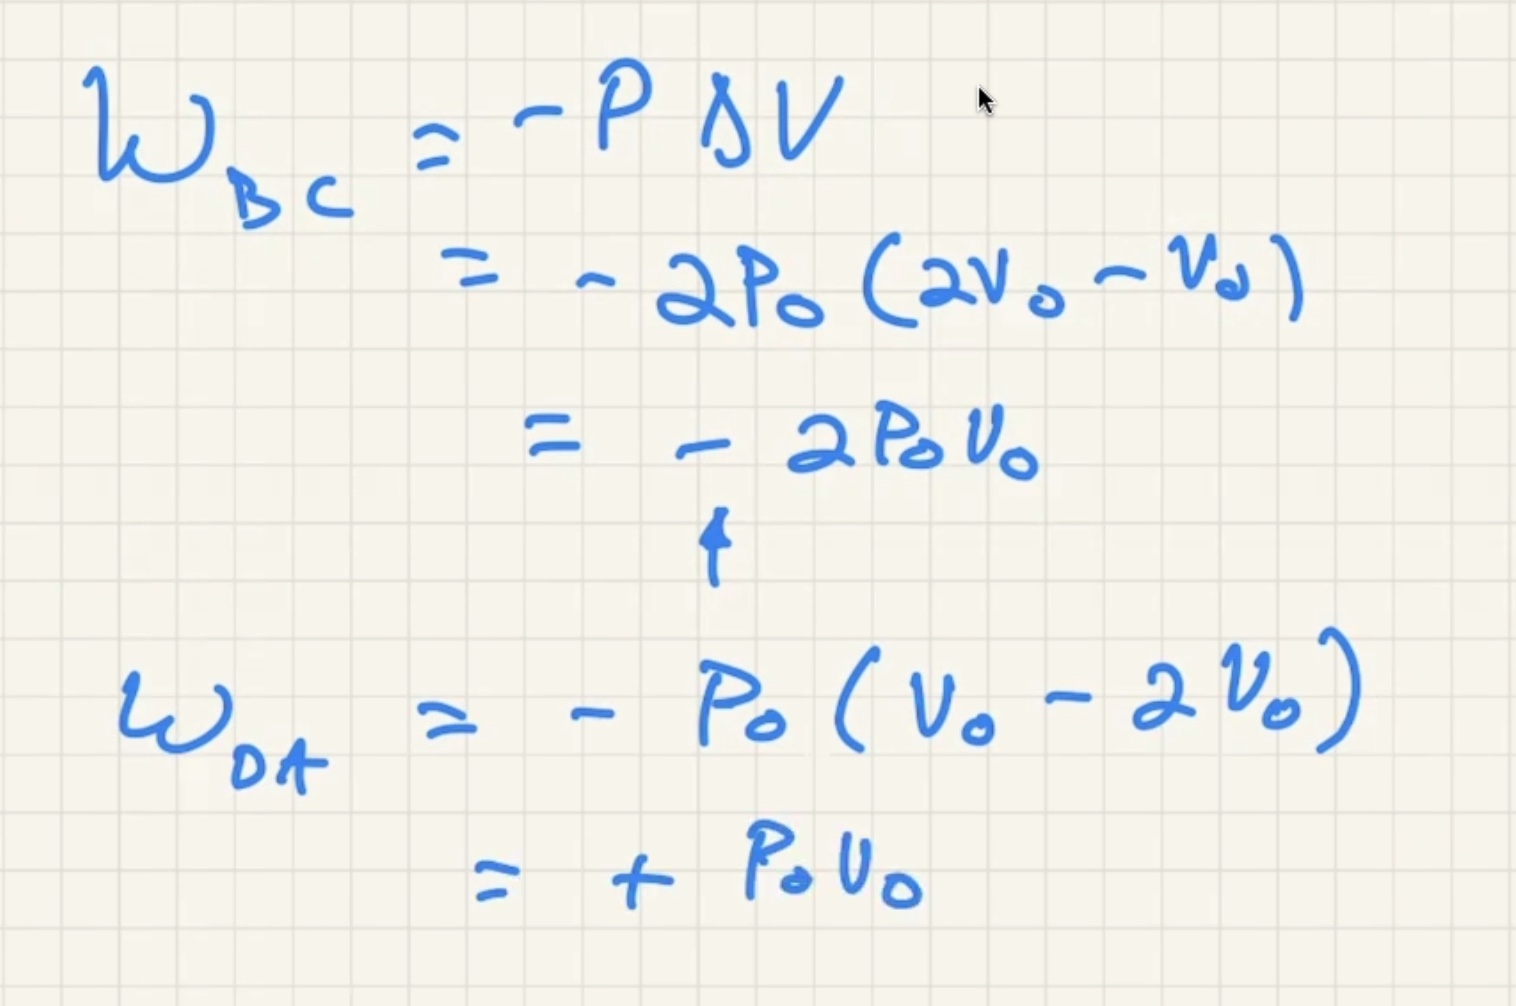 W_BC = -P ΔV
= - 2P₀ (2V₀ - V₀)
= - 2P₀V₀
↑
W_DA = - P₀ (V₀ - 2V₀)
= + P₀V₀